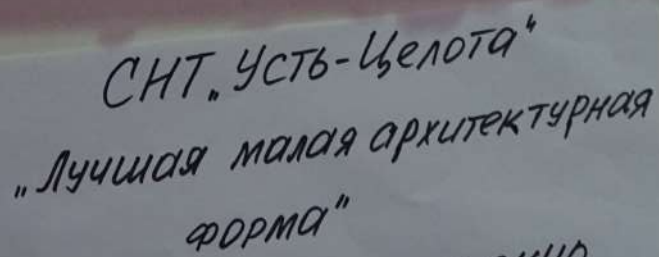 СНТ „Усть-Целота"
„Лучшая малая архитектурная
форма"